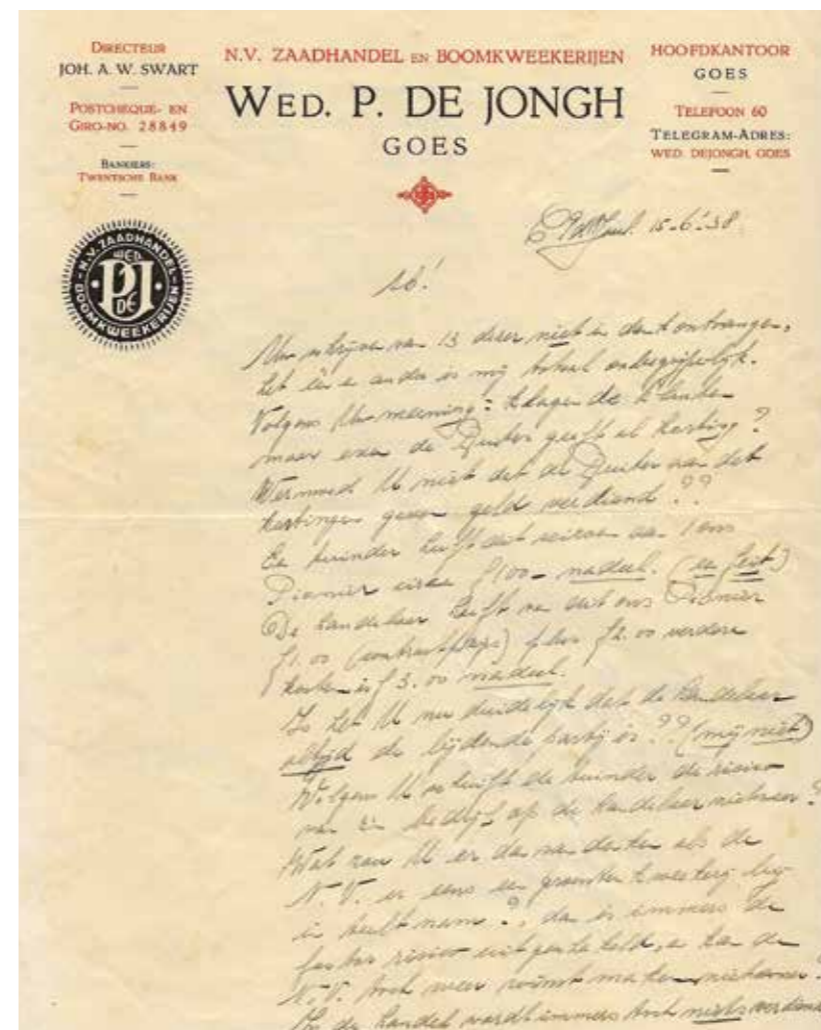 DIRECTEUR
JOH. A. W. SWART
POSTCHEQUE- EN
GIRO-NO. 28849
BANKIERS:
TWENTSCHE BANK
N.V. ZAADHANDEL EN BOOMKWEEKERIJEN
WED. P. DE JONGH
GOES
HOOFDKANTOOR
GOES
TELEFOON 60
TELEGRAM-ADRES:
WED. DEJONGH, GOES
N.V. ZAADHANDEL-
BOOMKWEEKERIJEN
WED
PDJ
DE
15-6-'38
Uw schrijven van 13 dezer niet in dank ontvangen,
het één en ander is mij totaal onbegrijpelijk.
Volgens Uw meening: klagen de klanten
maar even de geeft al korting?
Vermoed U niet dat de van dat
kortingen geven geld verdiend??
En tuinder heeft dit seizoen van 1 ons
Pionier circa f100- nadeel. (een feit)
De handelaar heeft van dit ons Pionier
f1.00 (contractprijs) plus f2.00 verdere
kosten is f 3.00 nadeel.
Is het U nu duidelijk dat de handelaar
altijd de lijdende partij is?? (mij niet)
Volgens U schuift de tuinder de risico
van z'n bedrijf op de handelaar nietwaar?
Wat zou U er dan van denken als de
N.V. er eens een groenten kweekerij bij
in teelt nam?, dan is immers de
factor risico uitgeschakeld, en kan de
N.V. toch weer winst maken nietwaar?
In de handel wordt immers toch niets verdiend